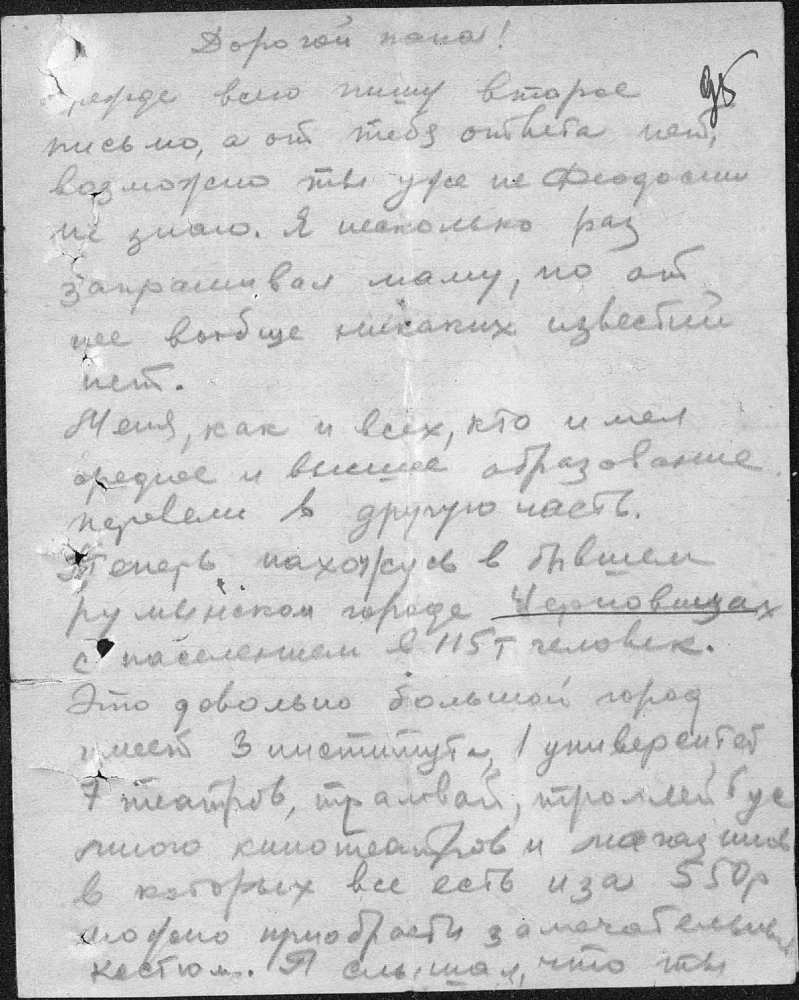 Дорогой папа!
прежде всего пишу второе
письмо, а от тебя ответа нет,
возможно ты уже не Феодосии
не знаю. Я несколько раз
запрашивал маму, но от
нее вообще никаких известий
нет.
Меня, как и всех, кто имел
среднее и высшее образование
перевели в другую часть.
Теперь нахожусь в бывшем
румынском городе Черновицах
с населением в 115т человек.
Это довольно большой город
имеет 3 института, 1 университет
7 театров, трамвай, троллейбус
много кинотеатров и магазинов
в которых все есть и за 550р
можно приобрести замечательный
костюм. Я слышал, что ты